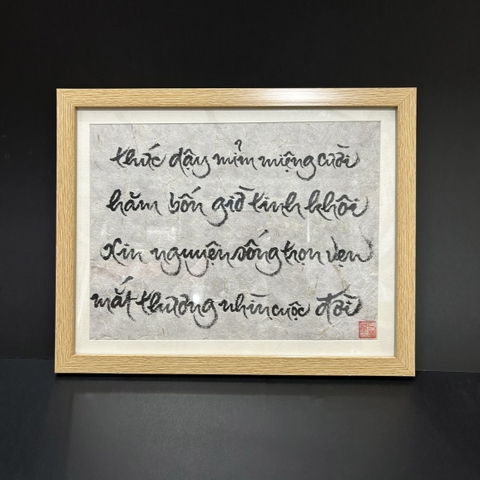 thức dậy mỉm miệng cười
hăm bốn giờ tinh khôi
xin nguyện sống trọn vẹn
mắt thương nhìn cuộc đời